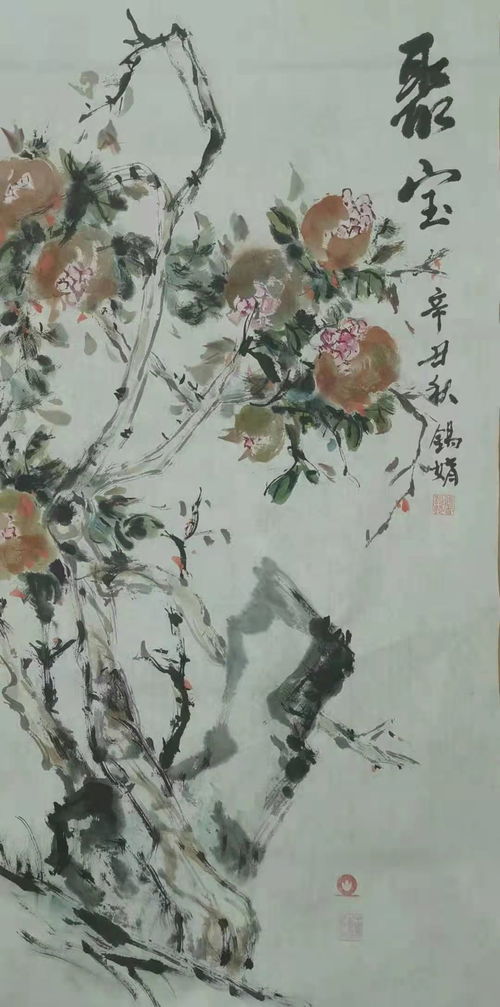 聚宝
辛丑秋
锡娟